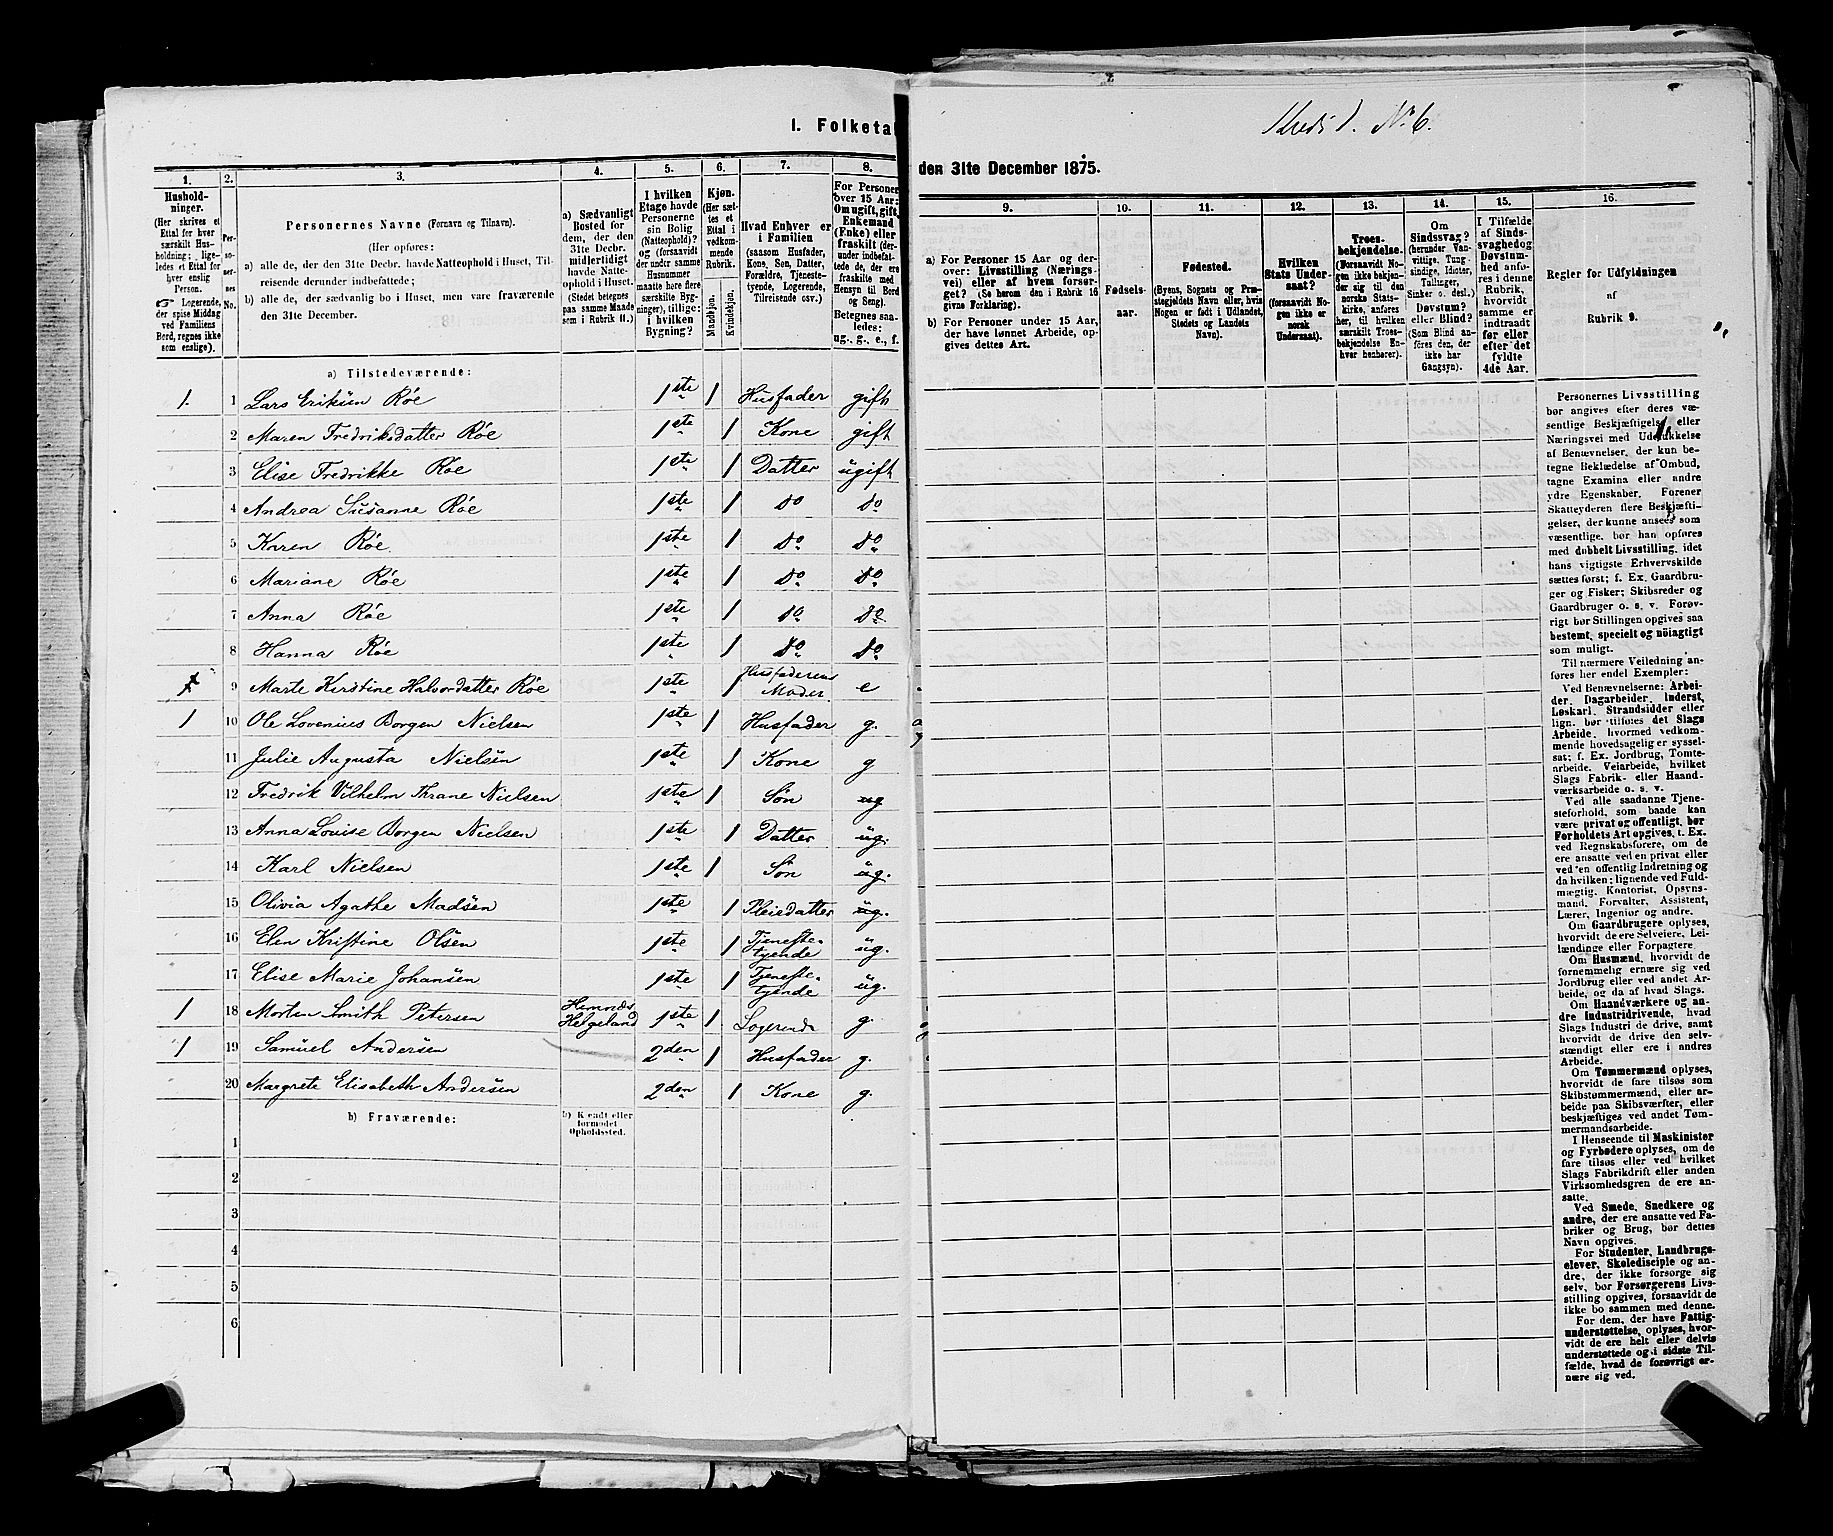 Kreds 1. No 6.
I. Folketa
den 31te December 1875.
1.
Hushold-
ninger.
(Her skrives et
Ettal for hver
særskilt Hus-
holdning; lige-
ledes et Ettal for
hver enslig
Person.
☞ Logerende,
der spise Middag
ved Familiens
Bord, regnes ikke
som enslige).
2.
Per-
so-
ner-
nes
No.
3.
Personernes Navne (Fornavn og Tilnavn).
(Her opføres:
a) alle de, der den 31te Decbr. havde Natteophold i Huset, Til-
reisende derunder indbefattede;
b) alle de, der sædvanlig bo i Huset, men vare fraværende
den 31te December.
4.
a) Sædvanligt
Bosted for
dem, der den
31te Decbr.
midlertidigt
havde Natte-
ophold i Huset.
(Stedet betegnes
paa samme Maade
som i Rubrik 11.)
5.
I hvilken
Etage havde
Personerne
sin Bolig
(Natteophold)?
og (forsaavidt
der under samme
Husnummer
maatte høre flere
særskilte Byg-
ninger), tillige:
i hvilken
Bygning?
6.
Kjøn.
(Her sæt-
tes et
Ettal i
vedkom-
mende
Rubrik.
Mandkjøn.
Kvindekjøn.
7.
Hvad Enhver er
i Familien
(saasom Husfader,
Kone, Søn, Datter,
Forældre, Tjeneste-
tyende, Logerende,
Tilreisende osv.)
8.
For Personer
over 15 Aar:
Om ugift, gift,
Enkemand
(Enke) eller
fraskilt (der-
under indbefat-
tede de, der ere
fraskilte med
Hensyn til Bord
og Seng).
Betegnes saa-
ledes:
ug., g., e., f.
9.
a) For Personer 15 Aar og der-
over: Livsstilling (Nærings-
vei) eller af hvem forsør-
get? (Se herom den i Rubrik 16
givne Forklaring).
b) For Personer under 15 Aar,
der have lønnet Arbeide, op-
gives dettes Art.
10.
Fødsels-
aar.
11.
Fødested.
(Byens, Sognets og Præ-
stegjeldets Navn eller, hvis
Nogen er født i Udlandet,
Stedets og Landets
Navn).
12.
Hvilken
Stats Under-
saat?
(forsaavidt No-
gen ikke er
norsk
Undersaat).
13.
Troes-
bekjendelse.
(Forsaavidt No-
gen ikke bekjen-
der sig til den
norske Stats-
kirke, anføres
her, til hvilket
særskilt Troes-
bekjendelse En-
hver henhører).
14.
Om
Sindssvag?
(herunder Van-
vittige, Tung-
sindige, Idioter,
Tullinger,
Sinker o. desl.)
Døvstum?
eller Blind?
(Som Blind an-
føres den, der
ikke har
Gangsyn).
15.
I Tilfælde
af Sinds-
svaghed og
Døvstum-
hed anfø-
res i denne
Rubrik,
hvorvidt
samme er
indtraadt
før eller
efter det
fyldte
4de Aar.
16.
Regler for Udfyldningen
af
Rubrik 9.
a) Tilstedeværende:
1. 1 Lars Eriksen Røe 1ste 1 Husfader gift
2 Maren Fredriksdatter Røe 1ste 1 Kone gift
3 Elise Fredrikke Røe 1ste 1 Datter ugift
4 Andrea Susanne Røe 1ste 1 do do
5 Karen Røe 1ste 1 do do
6 Mariane Røe 1ste 1 do do
7 Anna Røe 1ste 1 do do
8 Hanna Røe 1ste 1 do do
9 Marte Kirstine Halvordatter Røe 1ste 1 Husfaderens Moder e
1 10 Ole Lovenius Borgen Nielsen 1ste 1 Husfader g.
11 Julie Augusta Nielsen 1ste 1 Kone g
12 Fredrik Vilhelm Thrane Nielsen 1ste 1 Søn ug
13 Anna Louise Borgen Nielsen 1ste 1 Datter ug.
14 Karl Nielsen 1ste 1 Søn ug.
15 Olivia Agathe Madsen 1ste 1 Pleiedatter ug.
16 Elen Kristine Olsen 1ste 1 Tjeneste-tyende ug.
17 Elise Marie Johansen 1ste 1 Tjeneste-tyende ug.
1 18 Morten Smith Petersen Helgeland 1ste 1 Logerende g.
1 19 Samuel Andersen 2den 1 Husfader g.
20 Margrete Elisabeth Andersen 2den 1 Kone g.
b) Fraværende:
b) Kjendt eller
formodet
Opholdssted.
1
2
3
4
5
6
Personernes Livsstilling
bør angives efter deres væ-
sentlige Beskjæftigelse eller
Næringsvei med Udelukkelse
af Benævnelser, der kun be-
tegne Beklædelse af Ombud,
tagne Examina eller andre
ydre Egenskaber. Forener
Skatteyderen flere Beskjæfti-
gelser, der kunne ansees som
væsentlige, bør han opføres
med dobbelt Livsstilling, idet
hans vigtigste Erhvervskilde
sættes først; f. Ex. Gaardbru-
ger og Fisker; Skibsreder og
Gaardbruger o. s. v. Forøv-
rigt bør Stillingen opgives saa
bestemt, specielt og nöiagtigt
som muligt.
Til nærmere Veiledning an-
føres her endel Exempler:
Ved Benævnelserne: Arbei-
der, Dagarbeider, Inderst,
Løskarl, Strandsidder eller
lign. bør tilføres det Slags
Arbeide, hvormed vedkom-
mende hovedsagelig er syssel-
sat; f. Ex. Jordbrug, Tomte-
arbeide, Veiarbeide, hvilket
Slags Fabrik- eller Haand-
værksarbeide o. s. v.
Ved alle saadanne Tjene-
steforhold, som baade kan
være privat og offentligt, bør
Forholdets Art opgives, t. Ex.
ved Regnskabsførere, om de
ere ansatte ved en privat eller
ved en offentlig Indretning og
da hvilken; lignende ved Fuld-
mægtig, Kontorist, Opsyns-
mand, Forvalter, Assistent,
Lærer, Ingeniør og andre.
Om Gaardbrugere oplyses,
hvorvidt de ere Selveiere, Lei-
lændinge eller Forpagtere.
Om Husmænd, hvorvidt de
fornemmelig ernære sig ved
Jordbrug eller ved andet Ar-
beide, og da af hvad Slags.
Om Haandværkere og an-
dre Industridrivende, hvad
Slags Industri de drive, samt
hvorvidt de drive den selv-
stændigt eller ere i andres
Arbeide.
Om Tømmermænd oplyses,
hvorvidt de fare tilsøs som
Skibstømmermænd, eller ar-
beide paa Skibsværfter, eller
beskjæftiges ved andet Tøm-
mermandsarbeide.
I Henseende til Maskinister
og Fyrbødere oplyses, om de
fare tilsøs eller ved hvilket
Slags Fabrikdrift eller anden
Virksomhedsgren de ere an-
satte.
Ved Smede, Snedkere og
andre, der ere ansatte ved Fa-
briker og Brug, bør dettes
Navn opgives.
For Studenter, Landbrugs-
elever, Skoledisciple og an-
dre, der ikke forsørge sig
selv, bør Forsørgerens Livs-
stilling opgives, forsaavidt de
ikke bo sammen med denne.
For dem, der have Fattig-
understøttelse, oplyses, hvor-
vidt de ere helt eller delvis
understøttede og i sidste Til-
fælde, hvad de forøvrigt er-
nære sig ved.